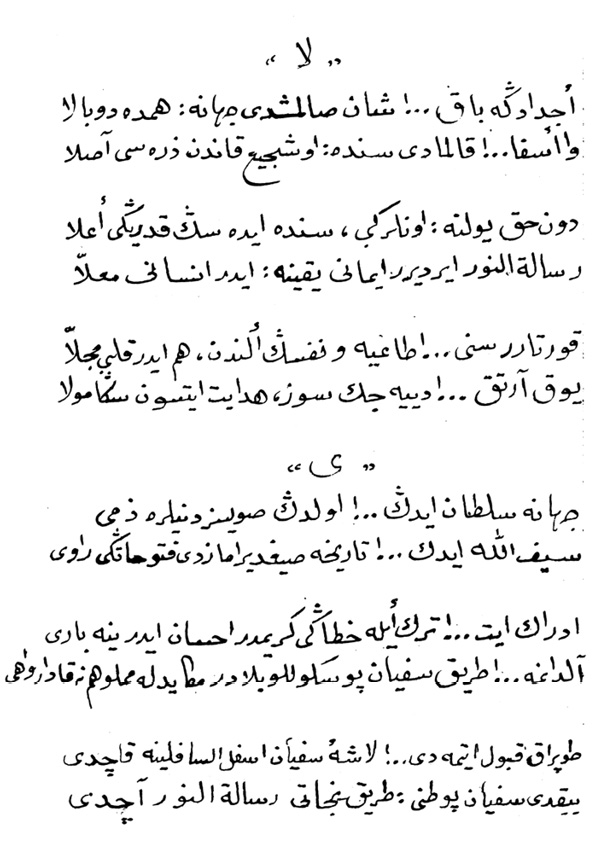 «لا»
أجدادڭه باق ..! شان صالمشدى جهانه: همده دوبالا
وا أسفا..! قالمادى سنده: او شجيع قاندن ذره سى آصلا
دون حق يولنه: اونلر كبى، سنده ايده سڭ قدريڭى أعلا
رسالة النور ايرديرر ايمانى يقينه: ايدر انسانى معلاّ
قورتارر سنى ..! طاغيه و نفسڭ ألندن، هم ايدر قلبى مجلاّ
يوق آرتق ..! دييه جك سوز، هدايت ايتسون سڭا مولا
«ى»
جهانه سلطان ايدڭ ..! اولدڭ صويسز دنيلره ذمى
سيف الله ايدڭ ..! تاريخه صيغديرامازدى فتوحاتڭى راوى
ادراك ايت ..! ترك أيله خطاڭى كريمدر احسان ايدر ينه بارى
آلدانمه ..! طريق سفيان پوسكوللو بلادر مكايدله مملو هم نه قادار واهى
طوپراق قبول ايتمه دى ..! لاشۀ سفيان اسفل السافلينه قاچدى
ييقدى سفيان پوطنى: طريق نجاتى رسالة النور آچدى